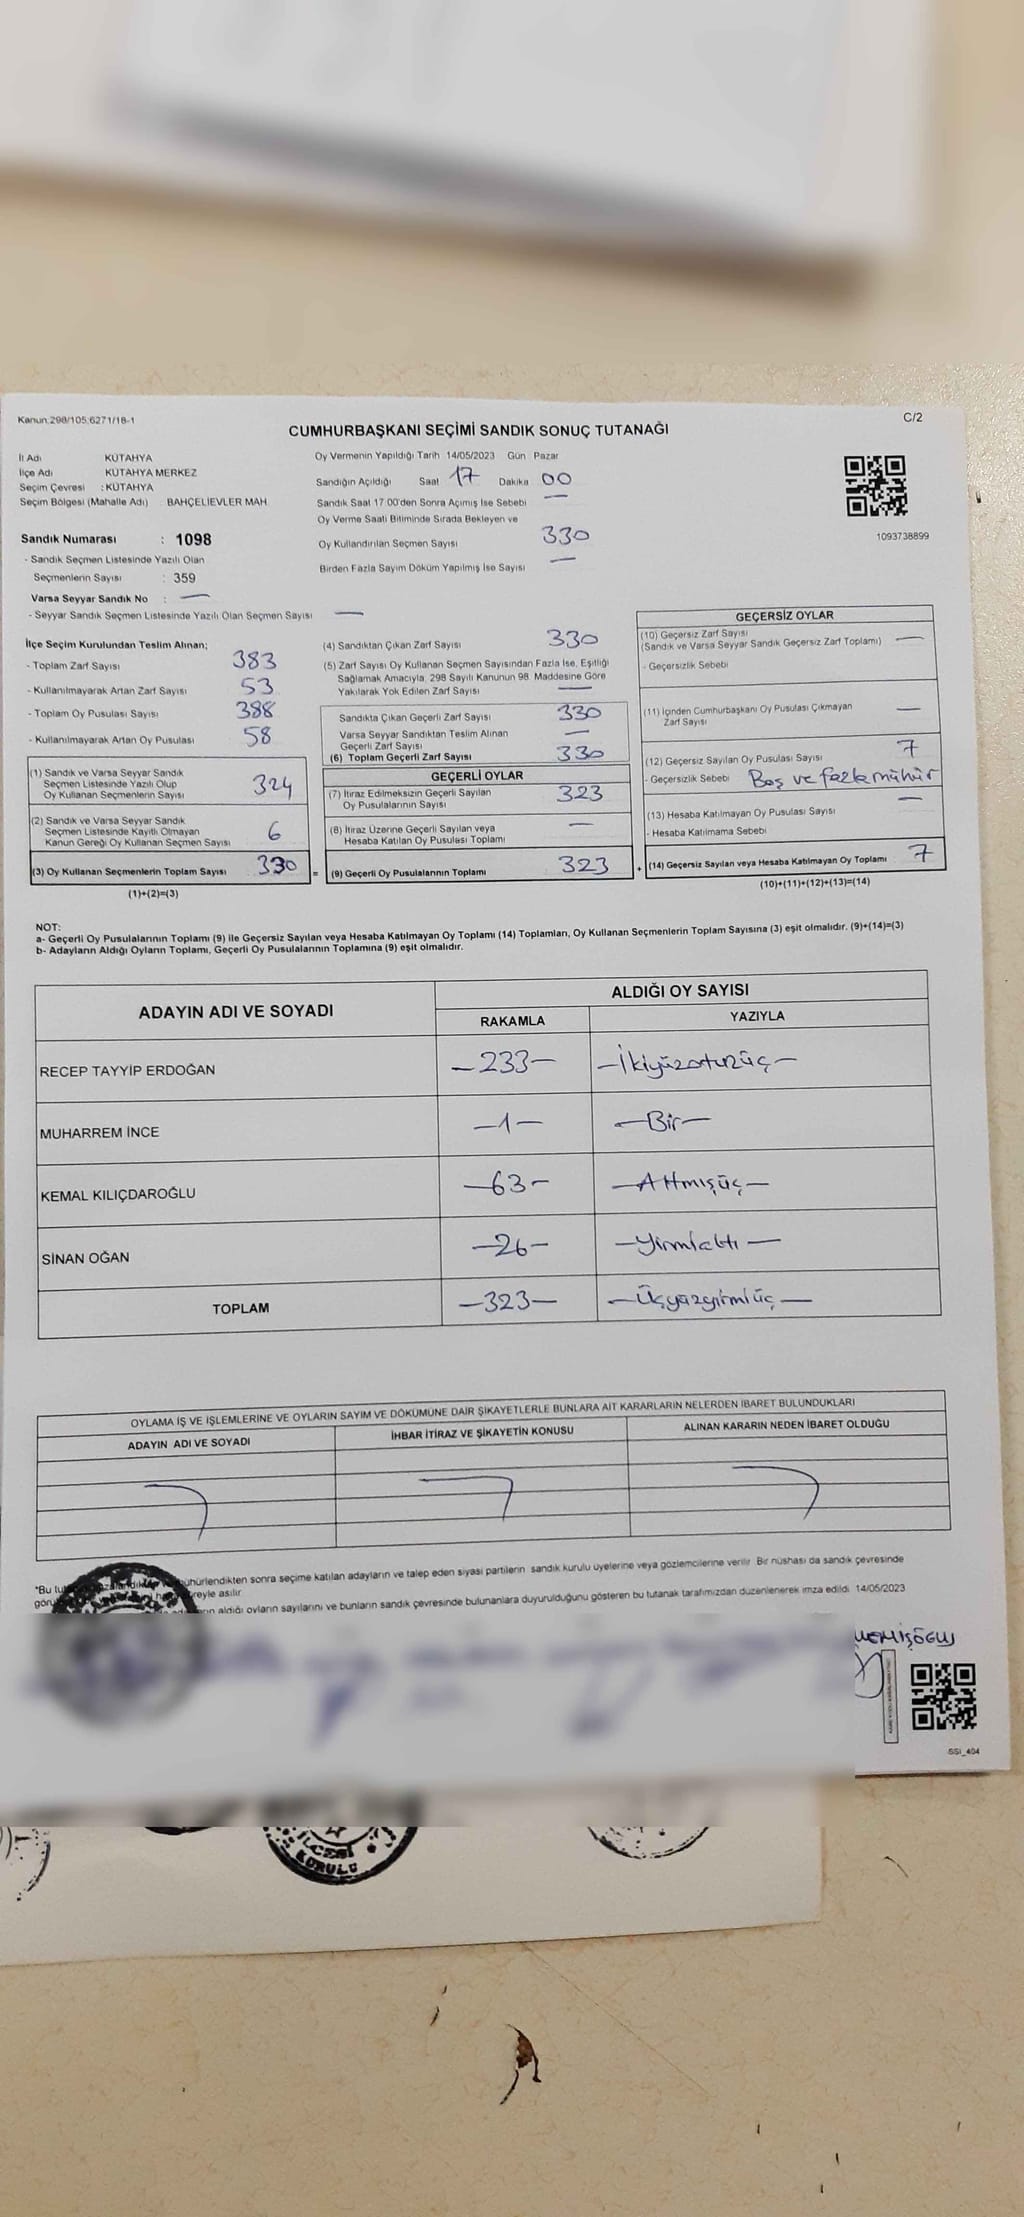 Kanun:298/105;6271/18-1
C/2
CUMHURBAŞKANI SEÇİMİ SANDIK SONUÇ TUTANAĞI
İl Adı KÜTAHYA
İlçe Adı KÜTAHYA MERKEZ
Seçim Çevresi : KÜTAHYA
Seçim Bölgesi (Mahalle Adı) BAHÇELİEVLER MAH.
Sandık Numarası : 1098
- Sandık Seçmen Listesinde Yazılı Olan
Seçmenlerin Sayısı : 359
Varsa Seyyar Sandık No : —
- Seyyar Sandık Seçmen Listesinde Yazılı Olan Seçmen Sayısı —
Oy Vermenin Yapıldığı Tarih 14/05/2023 Gün Pazar
Sandığın Açıldığı Saat 17 Dakika 00
Sandık Saat 17.00'den Sonra Açımış İse Sebebi —
Oy Verme Saati Bitiminde Sırada Bekleyen ve
Oy Kullandırılan Seçmen Sayısı 330
Birden Fazla Sayım Döküm Yapılmış İse Sayısı —
1093738899
İlçe Seçim Kurulundan Teslim Alınan;
- Toplam Zarf Sayısı 383
- Kullanılmayarak Artan Zarf Sayısı 53
- Toplam Oy Pusulası Sayısı 388
- Kullanılmayarak Artan Oy Pusulası 58
(1) Sandık ve Varsa Seyyar Sandık
Seçmen Listesinde Yazılı Olup
Oy Kullanan Seçmenlerin Sayısı 324
(2) Sandık ve Varsa Seyyar Sandık
Seçmen Listesinde Kayıtlı Olmayan
Kanun Gereği Oy Kullanan Seçmen Sayısı 6
(3) Oy Kullanan Seçmenlerin Toplam Sayısı 330
(1)+(2)=(3)
(4) Sandıktan Çıkan Zarf Sayısı 330
(5) Zarf Sayısı Oy Kullanan Seçmen Sayısından Fazla İse, Eşitliği
Sağlamak Amacıyla, 298 Sayılı Kanunun 98. Maddesine Göre
Yakılarak Yok Edilen Zarf Sayısı —
Sandıkta Çıkan Geçerli Zarf Sayısı 330
Varsa Seyyar Sandıktan Teslim Alınan
Geçerli Zarf Sayısı —
(6) Toplam Geçerli Zarf Sayısı 330
GEÇERLİ OYLAR
(7) İtiraz Edilmeksizin Geçerli Sayılan
Oy Pusulalarının Sayısı 323
(8) İtiraz Üzerine Geçerli Sayılan veya
Hesaba Katılan Oy Pusulası Toplamı —
= (9) Geçerli Oy Pusulalarının Toplamı 323
GEÇERSİZ OYLAR
(10) Geçersiz Zarf Sayısı
(Sandık ve Varsa Seyyar Sandık Geçersiz Zarf Toplamı) —
- Geçersizlik Sebebi
(11) İçinden Cumhurbaşkanı Oy Pusulası Çıkmayan
Zarf Sayısı —
(12) Geçersiz Sayılan Oy Pusulası Sayısı 7
- Geçersizlik Sebebi Boş ve fazla mühür
(13) Hesaba Katılmayan Oy Pusulası Sayısı —
- Hesaba Katılmama Sebebi
+ (14) Geçersiz Sayılan veya Hesaba Katılmayan Oy Toplamı 7
(10)+(11)+(12)+(13)=(14)
NOT:
a- Geçerli Oy Pusulalarının Toplamı (9) ile Geçersiz Sayılan veya Hesaba Katılmayan Oy Toplamı (14) Toplamları, Oy Kullanan Seçmenlerin Toplam Sayısına (3) eşit olmalıdır. (9)+(14)=(3)
b- Adayların Aldığı Oyların Toplamı, Geçerli Oy Pusulalarının Toplamına (9) eşit olmalıdır.
ADAYIN ADI VE SOYADI
ALDIĞI OY SAYISI
RAKAMLA YAZIYLA
RECEP TAYYİP ERDOĞAN —233— —İkiyüzotuzüç—
MUHARREM İNCE —1— —Bir—
KEMAL KILIÇDAROĞLU —63— —Altmışüç—
SİNAN OĞAN —26— —Yirmialtı—
TOPLAM —323— —Üçyüzyirmiüç—
OYLAMA İŞ VE İŞLEMLERİNE VE OYLARIN SAYIM VE DÖKÜMÜNE DAİR ŞİKAYETLERLE BUNLARA AİT KARARLARIN NELERDEN İBARET BULUNDUKLARI
ADAYIN ADI VE SOYADI İHBAR İTİRAZ VE ŞİKAYETİN KONUSU ALINAN KARARIN NEDEN İBARET OLDUĞU
*Bu mühürlendikten sonra seçime katılan adayların ve talep eden siyasi partilerin sandık kurulu üyelerine veya gözlemcilerine verilir. Bir nüshası da sandık çevresinde
asılır.
aldığı oyların sayılarını ve bunların sandık çevresinde bulunanlara duyurulduğunu gösteren bu tutanak tarafımızdan düzenlenerek imza edildi. 14/05/2023
SSİ_404
İLÇESİ
KURULU